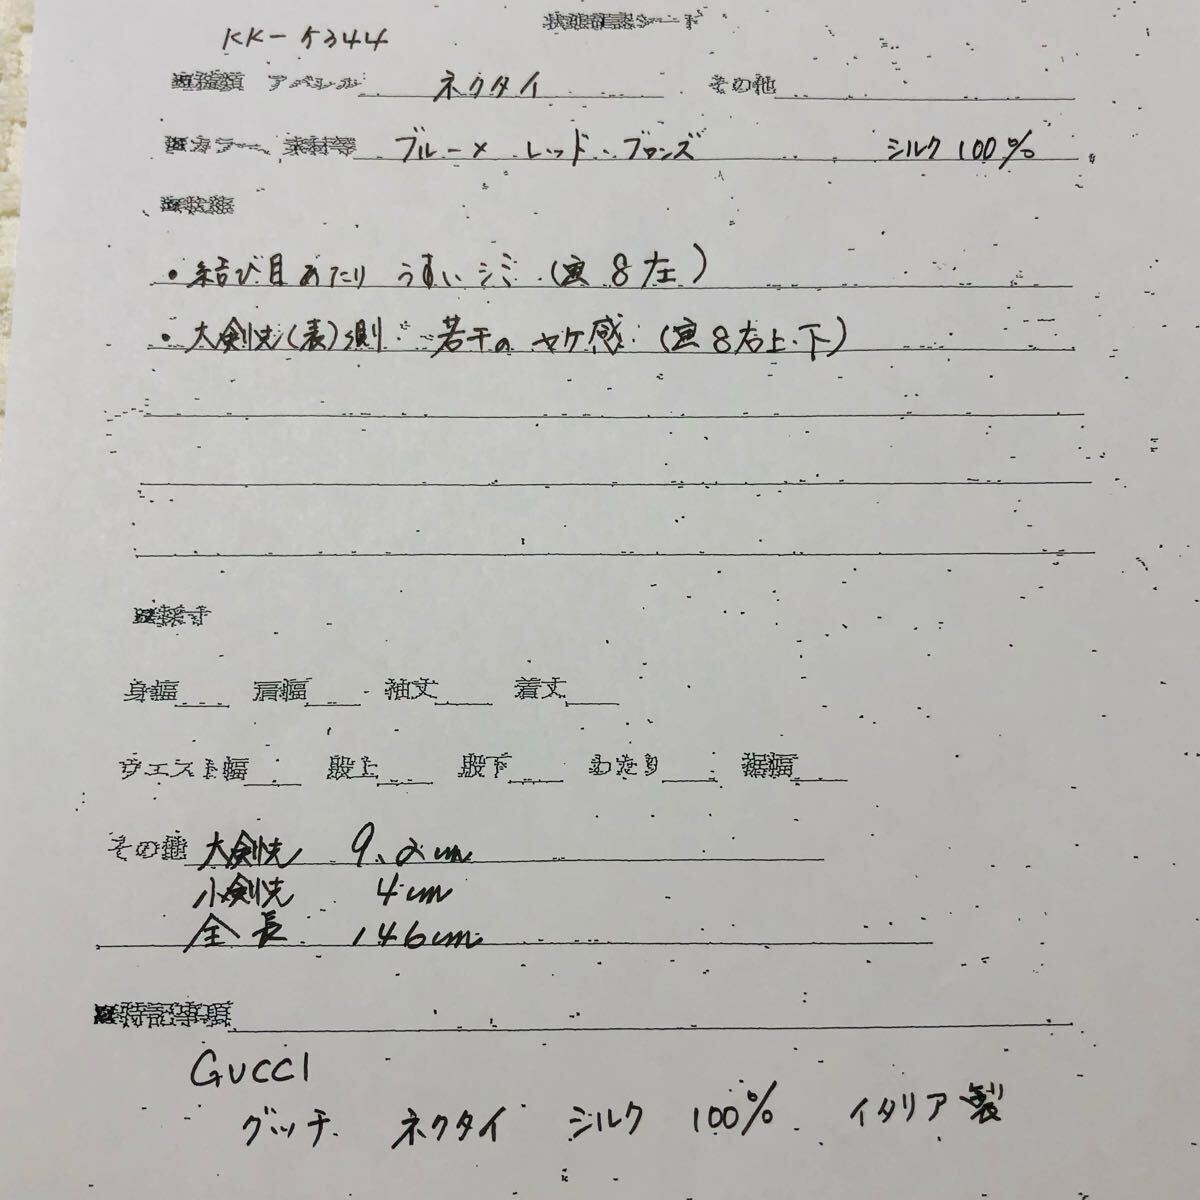 状態確認シート
KK-5344
種類 アパレル ネクタイ その他
カラー、素材等 ブルー×レッド・ブロンズ シルク100%
状態
・結び目あたり うすいシミ (寅8左)
・大剣先(表)側・若干のヤケ感・(寅8右上・下)
採寸
身幅 肩幅 袖丈 着丈
ウエスト幅 股上 股下 わたり 裾幅
その他 大剣先 9.2cm
小剣先 4cm
全長 146cm
特記事項
GUCCI
グッチ ネクタイ シルク 100% イタリア製